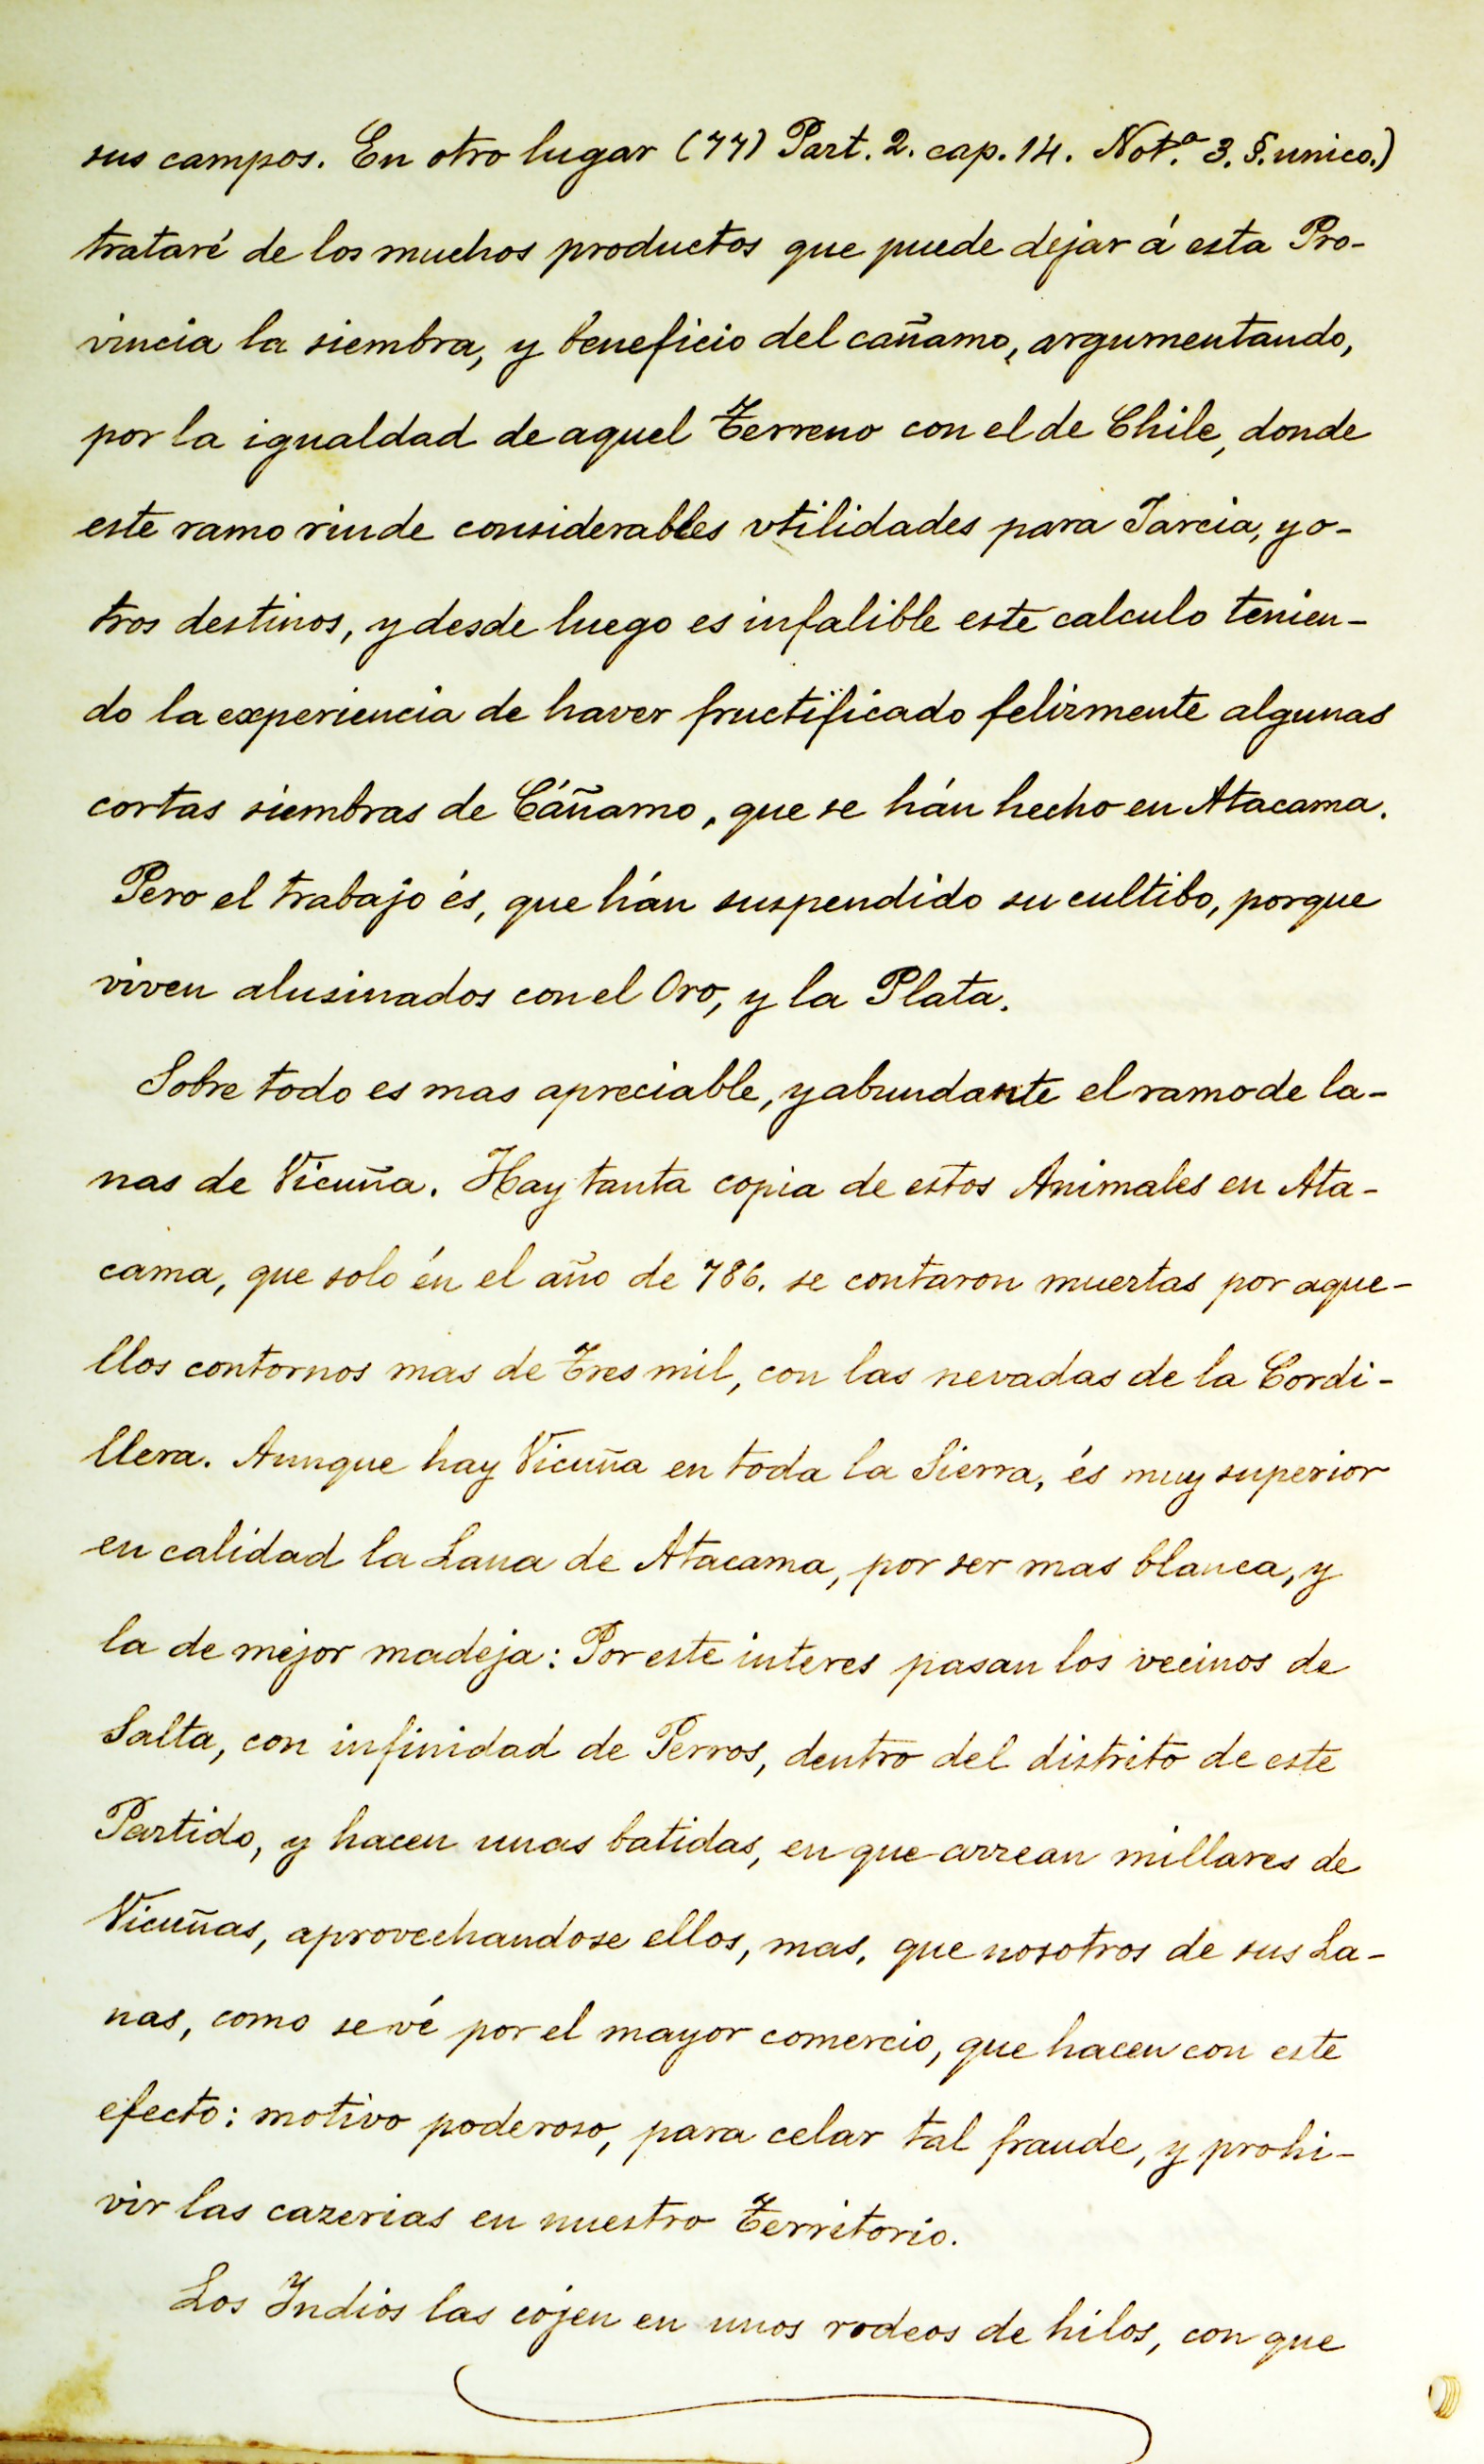 sus campos. En otro lugar (77) Part. 2. cap. 14. Not.ª 3. §. unico.)
trataré de los muchos productos que puede dejar á esta Pro-
vincia la siembra, y beneficio del cañamo, argumentando,
por la igualdad de aquel Terreno con el de Chile, donde
este ramo rinde considerables vtilidades para Jarcia, y o-
tros destinos, y desde luego es infalible este calculo tenien-
do la experiencia de haver fructificado felizmente algunas
cortas siembras de Cáñamo, que se hán hecho en Atacama.
Pero el trabajo és, que hán suspendido su cultibo, porque
viven alusinados con el Oro, y la Plata.
Sobre todo es mas apreciable, y abundante el ramo de la-
nas de Vicuña. Hay tanta copia de estos Animales en Ata-
cama, que solo én el año de 786. se contaron muertas por aque-
llos contornos mas de Tres mil, con las nevadas de la Cordi-
llera. Aunque hay Vicuña en toda la Sierra, és muy superior
en calidad la Lana de Atacama, por ser mas blanca, y
la de mejor madeja: Por este interes pasan los vecinos de
Salta, con infinidad de Perros, dentro del distrito de este
Partido, y hacen unas batidas, en que arrean millares de
Vicuñas, aprovechandose ellos, mas, que nosotros de sus La-
nas, como se vé por el mayor comercio, que hacen con este
efecto: motivo poderoso, para celar tal fraude, y prohi-
vir las cazerias en nuestro Territorio.
Los Indios las cojen en unos rodeos de hilos, con que